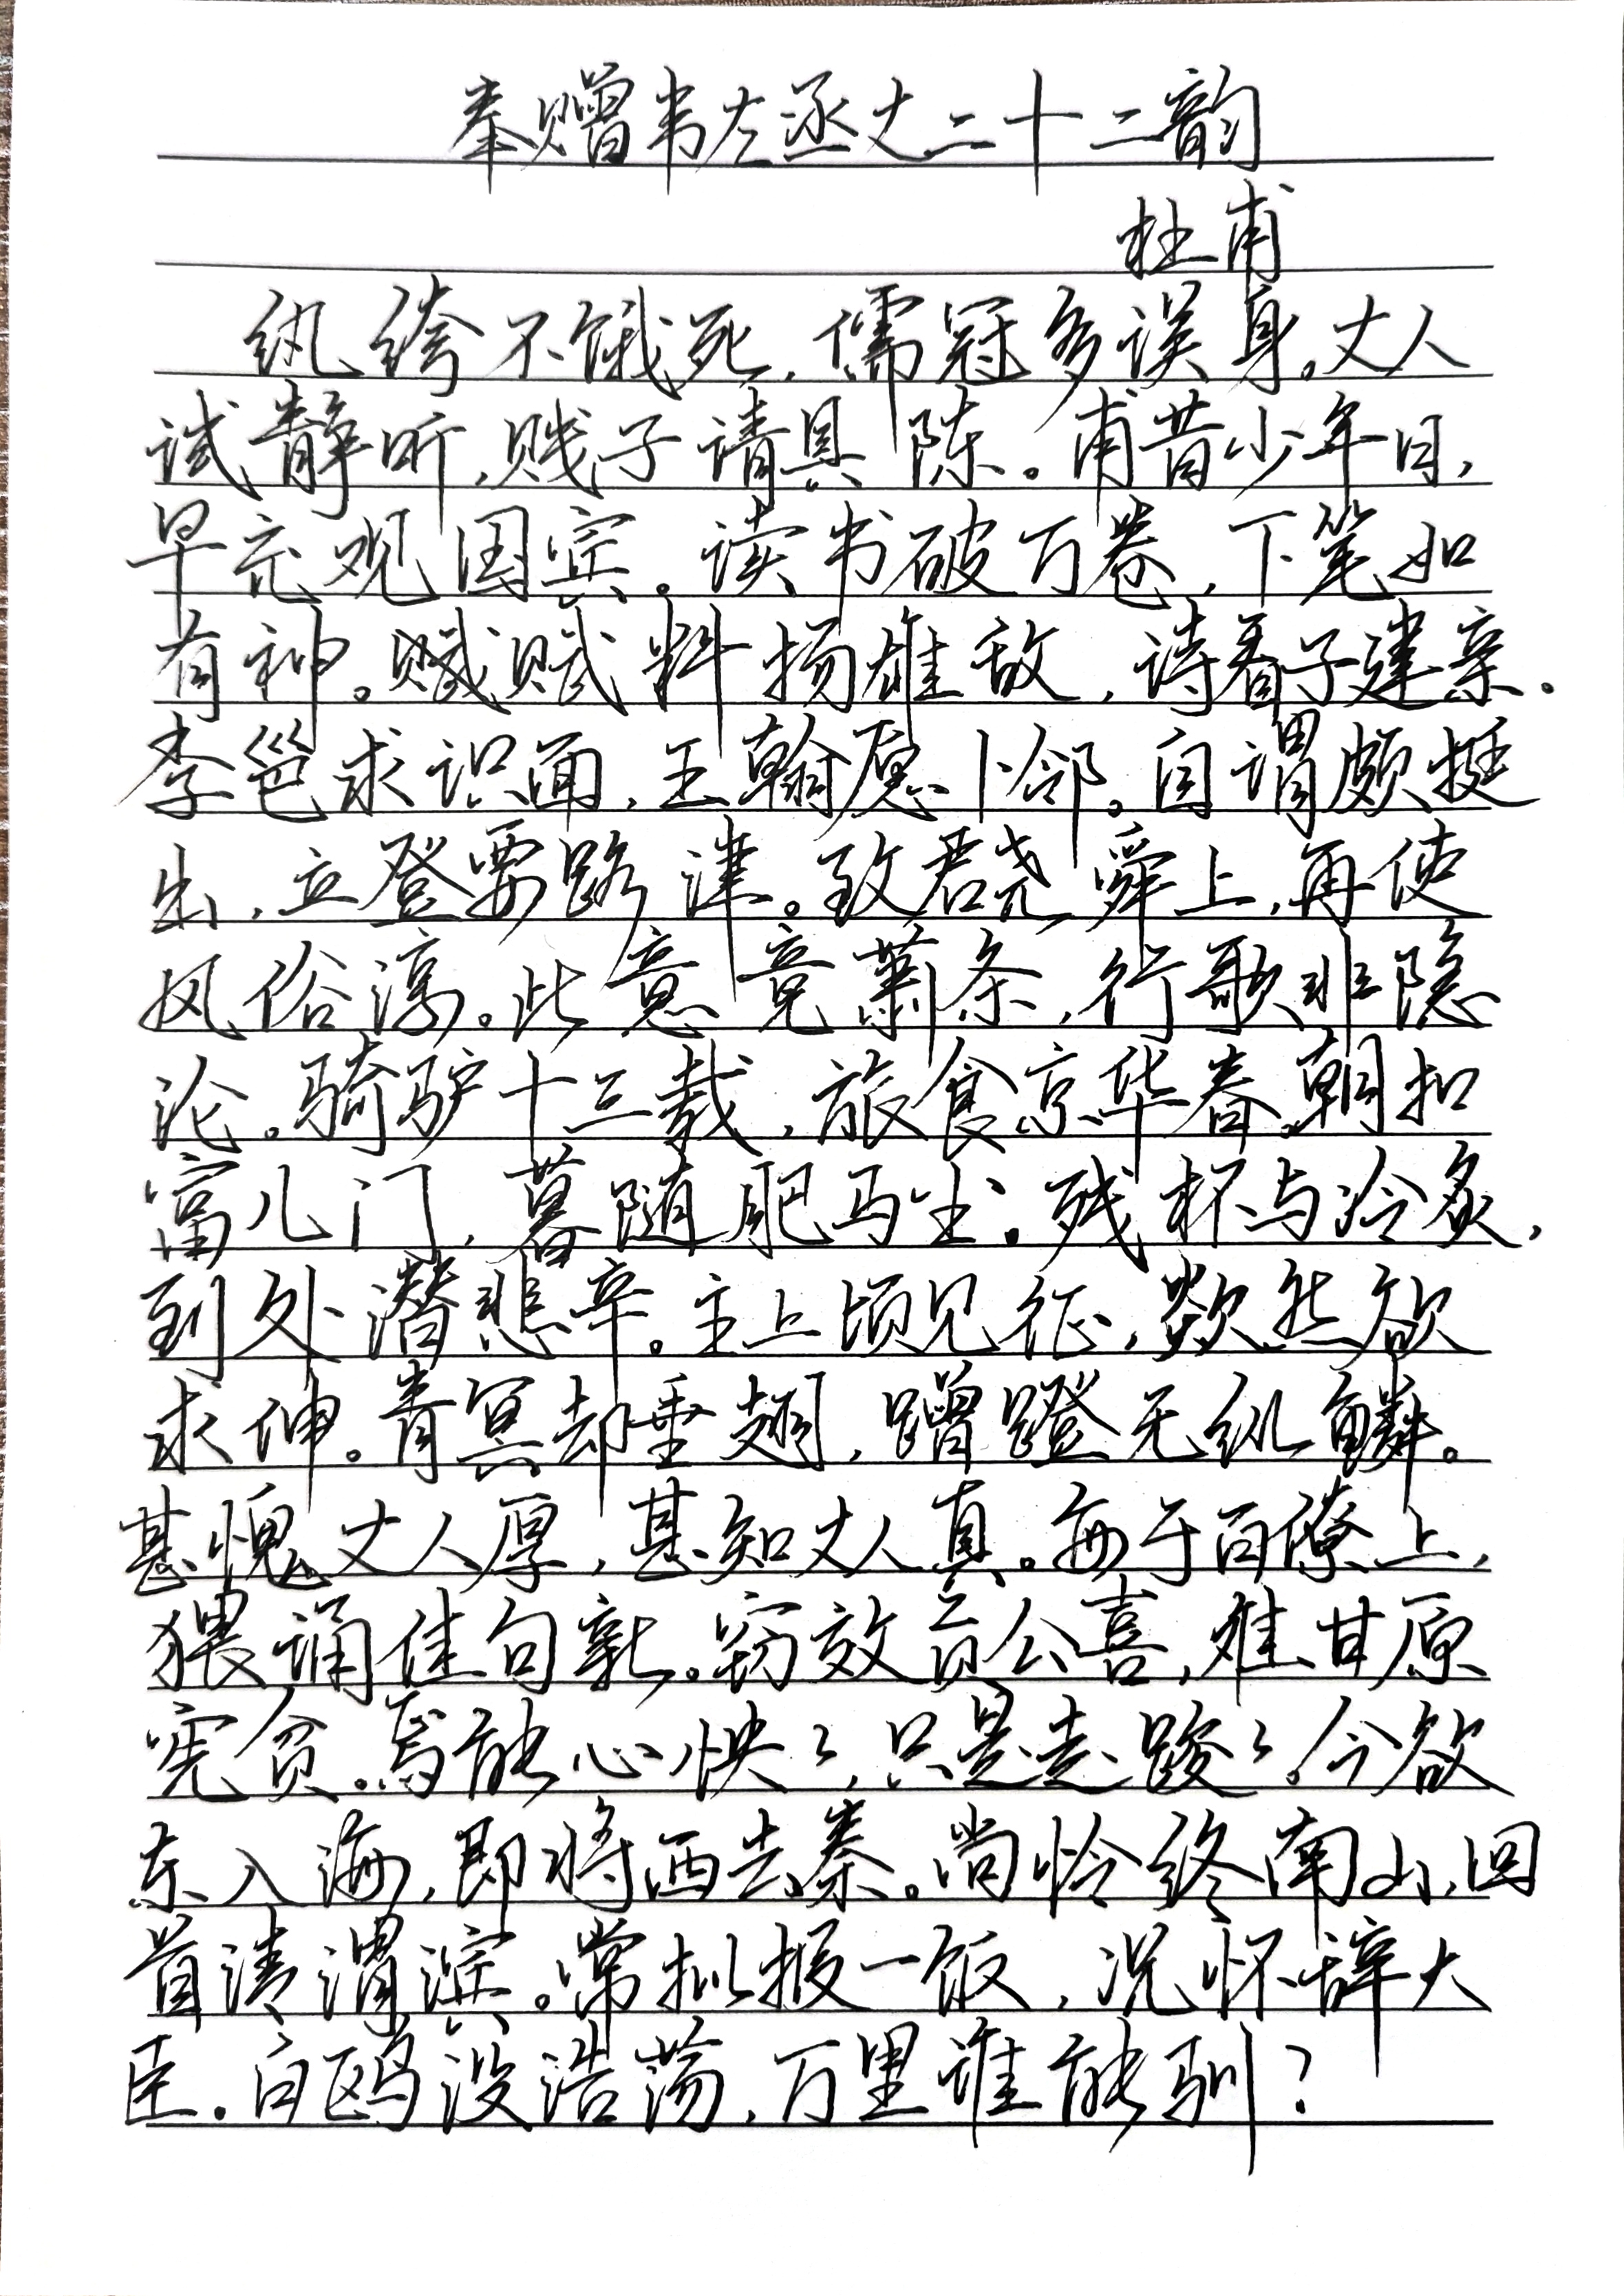 奉赠韦左丞丈二十二韵
杜甫
纨绔不饿死，儒冠多误身。丈人
试静听，贱子请具陈。甫昔少年日，
早充观国宾。读书破万卷，下笔如
有神。赋赋料扬雄敌，诗看子建亲。
李邕求识面，王翰愿卜邻。自谓颇挺
出，立登要路津。致君尧舜上，再使
风俗淳。此意竟萧条，行歌非隐
沦。骑驴十三载，旅食京华春。朝扣
富儿门，暮随肥马尘。残杯与冷炙，
到处潜悲辛。主上顷见征，欻然欲
求伸。青冥却垂翅，蹭蹬无纵鳞。
甚愧丈人厚，甚知丈人真。每于百僚上，
猥诵佳句新。窃效贡公喜，难甘原
宪贫。焉能心怏々，只是走踆々。今欲
东入海，即将西去秦。尚怜终南山，回
首清渭滨。常拟报一饭，况怀辞大
臣。白鸥没浩荡，万里谁能驯？